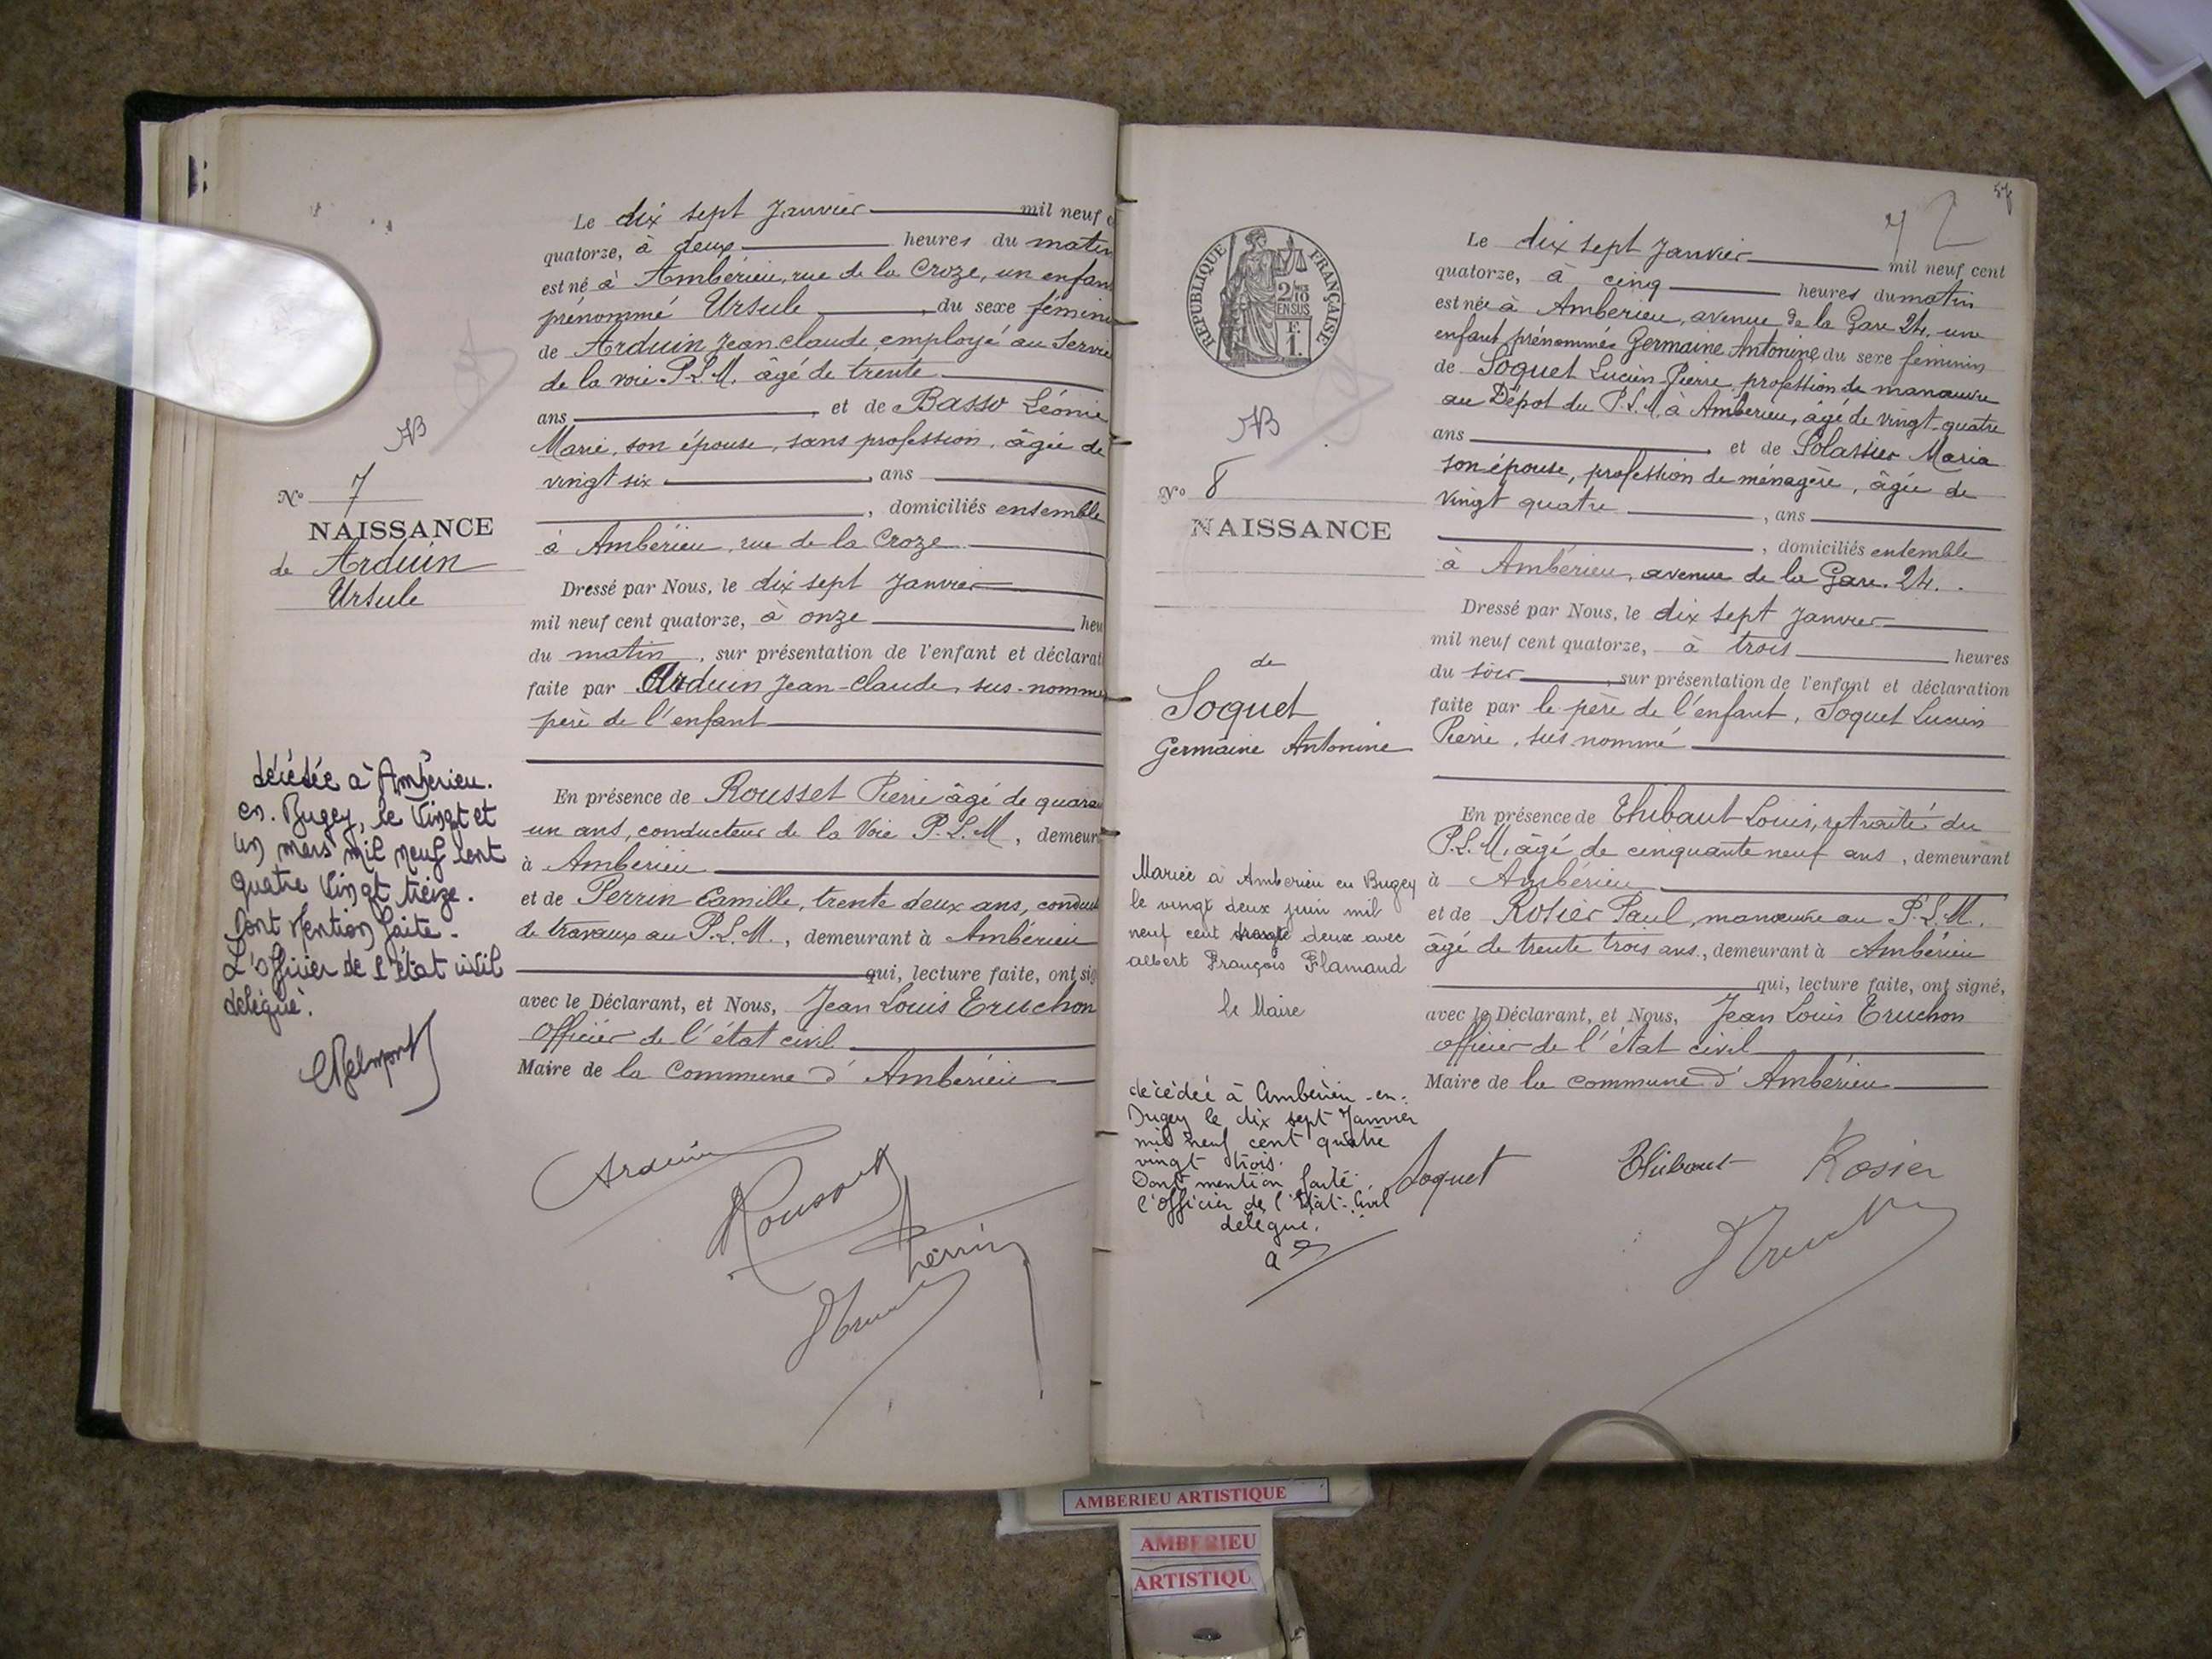 Le dix sept Janvier mil neuf c
quatorze, à deux heures du matin
est né à Ambérieu, rue de la Croze, un enfan
prénommé Ursule, du sexe fémini
de Arduin Jean Claude employé au Servic
de la voie P.L.M. âgé de trente
ans, et de Basso Léonie
Marie, son épouse, sans profession, âgée de
vingt six, ans
, domiciliés ensemble
à Ambérieu, rue de la Croze
Dressé par Nous, le dix sept Janvier
mil neuf cent quatorze, à onze heu
du matin, sur présentation de l'enfant et déclarat
faite par Arduin Jean-Claude, sus-nommé
père de l'enfant
En présence de Rousset Pierre âgé de quaran
un ans, conducteur de la Voie P.L.M., demeur
à Ambérieu
et de Perrin Camille, trente deux ans, conduct
de travaux au P.L.M., demeurant à Ambérieu
qui, lecture faite, ont sig
avec le Déclarant, et Nous, Jean Louis Truchon
Officier de l'état civil
Maire de la Commune d'Ambérieu
AB
No 7
NAISSANCE
de Arduin
Ursule
décédée à Ambérieu.
en. Bugey, le Vingt et
un mars mil neuf cent
quatre Vingt treize.
Dont Mention faite.
L'Officier de l'état civil
délégué.
Arduin
Rousset
Perrin
57
2
RÉPUBLIQUE FRANÇAISE
2/10
EN SUS
F.
1.
AB
No 8
NAISSANCE
de
Soquet
Germaine Antonine
Mariée à Ambérieu en Bugey
le vingt deux juin mil
neuf cent trente deux avec
Albert François Flamand
le Maire
décédée à Ambérieu-en-
Bugey le dix sept Janvier
mil neuf cent quatre
vingt trois.
Dont mention faite
l'Officier de l'Etat-Civil
délégué.
Le dix sept Janvier mil neuf cent
quatorze, à cinq heures du matin
est née à Ambérieu, avenue de la Gare 24, une
enfant prénommée Germaine Antonine du sexe féminin
de Soquet Lucien Pierre, profession de manœuvre
au Dépôt du P.L.M. à Ambérieu, âgé de vingt-quatre
ans, et de Solassier Maria
son épouse, profession de ménagère, âgée de
vingt quatre, ans
, domiciliés ensemble
à Ambérieu, avenue de la Gare. 24.
Dressé par Nous, le dix sept Janvier
mil neuf cent quatorze, à trois heures
du soir, sur présentation de l'enfant et déclaration
faite par le père de l'enfant, Soquet Lucien
Pierre, sus nommé
En présence de Thibaut Louis, retraité du
P.L.M, âgé de cinquante neuf ans, demeurant
à Ambérieu
et de Rosier Paul, manœuvre au P.L.M.
âgé de trente trois ans, demeurant à Ambérieu
qui, lecture faite, ont signé,
avec le Déclarant, et Nous, Jean Louis Truchon
Officier de l'état civil
Maire de la commune d'Ambérieu
Soquet Thibaut Rosier
AMBERIEU ARTISTIQUE
AMBERIEU
ARTISTIQU